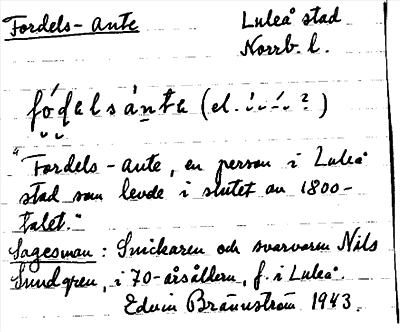 Fordels-ante
Luleå stad
Norrb. l.
(el. ?)
"Fordels-ante, en person i Luleå
stad som levde i slutet av 1800-
talet."
Sagesman: Snickaren och svarvaren Nils
Sundgren, i 70-årsåldern, f. i Luleå.
Edvin Brännström 1943.